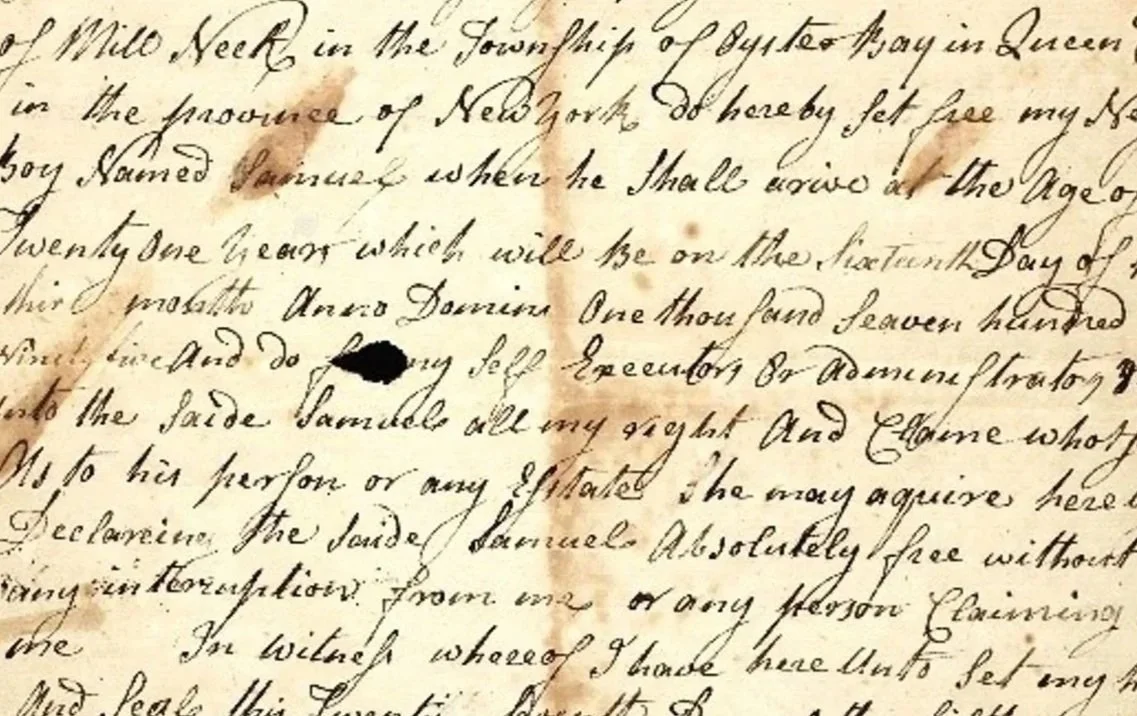 of Mill Neck in the Township of Oyster Bay in Queen
in the province of New York do hereby set free my Ne
Boy Named Samuel when he Shall arive at the Age of
Twenty One Years which will Be on the Sixteenth Day of
month Anno Domini One thousand Seaven hundred
And do my Self Executors Or Administrators
unto the saide Samuel all my right And Claime
As to his person or any Estate he may aquire here
Declareing the saide Samuel Absolutely free without
any interruption from me or any person Claiming
me In witness whereof I have here Unto Set my
And Seal this Twenty